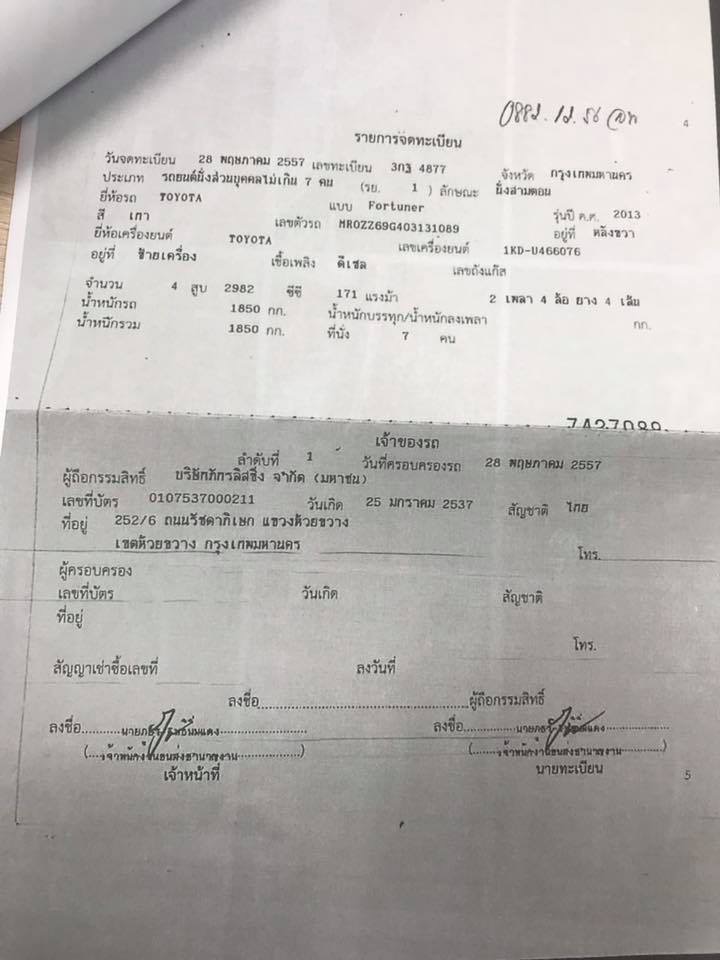 4
รายการจดทะเบียน
วันจดทะเบียน 28 พฤษภาคม 2557 เลขทะเบียน 3กฐ 4877 จังหวัด กรุงเทพมหานคร
ประเภท รถยนต์นั่งส่วนบุคคลไม่เกิน 7 คน (รย. 1 ) ลักษณะ นั่งสามตอน
ยี่ห้อรถ TOYOTA แบบ Fortuner รุ่นปี ค.ศ. 2013
สี เทา เลขตัวรถ MR0ZZ69G403131089 อยู่ที่ หลังขวา
ยี่ห้อเครื่องยนต์ TOYOTA เลขเครื่องยนต์ 1KD-U466076
อยู่ที่ ซ้ายเครื่อง เชื้อเพลิง ดีเซล เลขถังแก๊ส
จำนวน 4 สูบ 2982 ซีซี 171 แรงม้า 2 เพลา 4 ล้อ ยาง 4 เส้น
น้ำหนักรถ 1850 กก. น้ำหนักบรรทุก/น้ำหนักลงเพลา กก.
น้ำหนักรวม 1850 กก. ที่นั่ง 7 คน
7427089
เจ้าของรถ
ลำดับที่ 1 วันที่ครอบครองรถ 28 พฤษภาคม 2557
ผู้ถือกรรมสิทธิ์ บริษัทภัทรลิสซิ่ง จำกัด (มหาชน)
เลขที่บัตร 0107537000211 วันเกิด 25 มกราคม 2537 สัญชาติ ไทย
ที่อยู่ 252/6 ถนนรัชดาภิเษก แขวงห้วยขวาง
เขตห้วยขวาง กรุงเทพมหานคร โทร.
ผู้ครอบครอง
เลขที่บัตร วันเกิด สัญชาติ
ที่อยู่
โทร.
สัญญาเช่าซื้อเลขที่ ลงวันที่
ลงชื่อ ผู้ถือกรรมสิทธิ์
ลงชื่อ ลงชื่อ
(เจ้าพนักงานขนส่งชำนาญงาน) (เจ้าพนักงานขนส่งชำนาญงาน)
เจ้าหน้าที่ นายทะเบียน
5